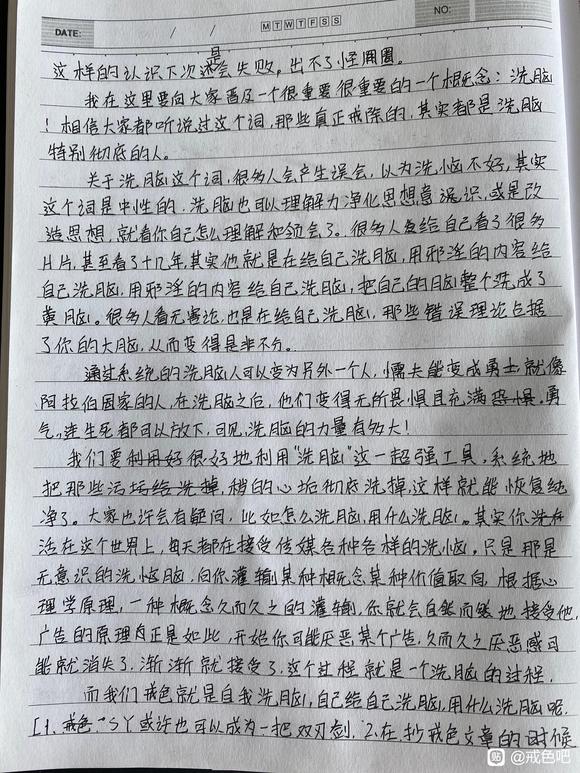 DATE: / / M T W T F S S NO:
这样的认识下次还是会失败，出不了怪圈。
我在这里要向大家普及一个很重要很重要的一个概念：洗脑
！相信大家都听说过这个词，那些真正戒除的，其实都是洗脑
特别彻底的人。
关于洗脑这个词，很多人会产生误会，以为洗恼不好，其实
这个词是中性的，洗脑也可以理解为净化思想意识，或是改
造思想，就看你自己怎么理解和领会了。很多人给自己看了很多
片片，甚至看了十几年，其实他就是在给自己洗脑，用邪淫的内容给
自己洗脑，用邪淫的内容给自己洗脑，把自己的脑整个洗成了
黄脑。很多人看无害论，也是在给自己洗脑，那些错误理论占据
了你的大脑，从而变得是非不分。
通过系统的洗脑人可以变为另外一个人，懦夫能变成勇士就像
阿拉伯国家的人，在洗脑之后，他们变得无所畏惧且充满恐惧，勇
气，连生死都可以放下，可见，洗脑的力量有多大！
我们要利用好很好地利用“洗脑”这一超强工具，系统地
把那些污垢给洗掉，稍的心垢彻底洗掉，这样就能恢复纯
净了。大家也许会有疑问，比如怎么洗脑，用什么洗脑。其实你
活在这个世界上，每天都在接受传媒各种各样的洗恼。只是那是
无意识的洗恼脑，向你灌输某种概念某种价值取向，根据心
理学原理，一种概念久而久之的灌输，你就会自然而然地接受他，
广告的原理正是如此，开始你可能厌恶某个广告，久而久之厌恶感可
能就消失了，渐渐就接受了，这个过程就是一个洗脑的过程，
而我们戒色就是自我洗脑，自己给自己洗脑，用什么洗脑呢，
[1、戒色SY或许也可以成为一把双刃剑，2.在抄戒色文章的时候
贴 @戒色吧